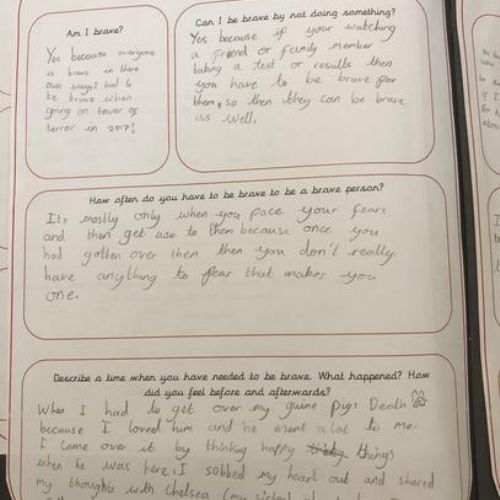 Am I brave?
Yes because everyone
is brave in there
own ways I had to
be brave when
going on tower of
terror in 2017!
Can I be brave by not doing something?
Yes because if your watching
a friend or family member
taking a test or results then
you have to be brave for
them, so then they can be brave
as well.
How often do you have to be brave to be a brave person?
Its mostly only when you face your fears
and then get use to them because once you
had gotten over then then you don't really
have anything to fear that makes you
one.
Describe a time when you have needed to be brave. What happened? How
did you feel before and afterwards?
When I had to get over my guine Pigs Death
because I loved him and he ment alot to me.
I came over it by thinking happy things
when he was here. I sobbed my heart out and shared
my thoughts with Chelsea (my sister)